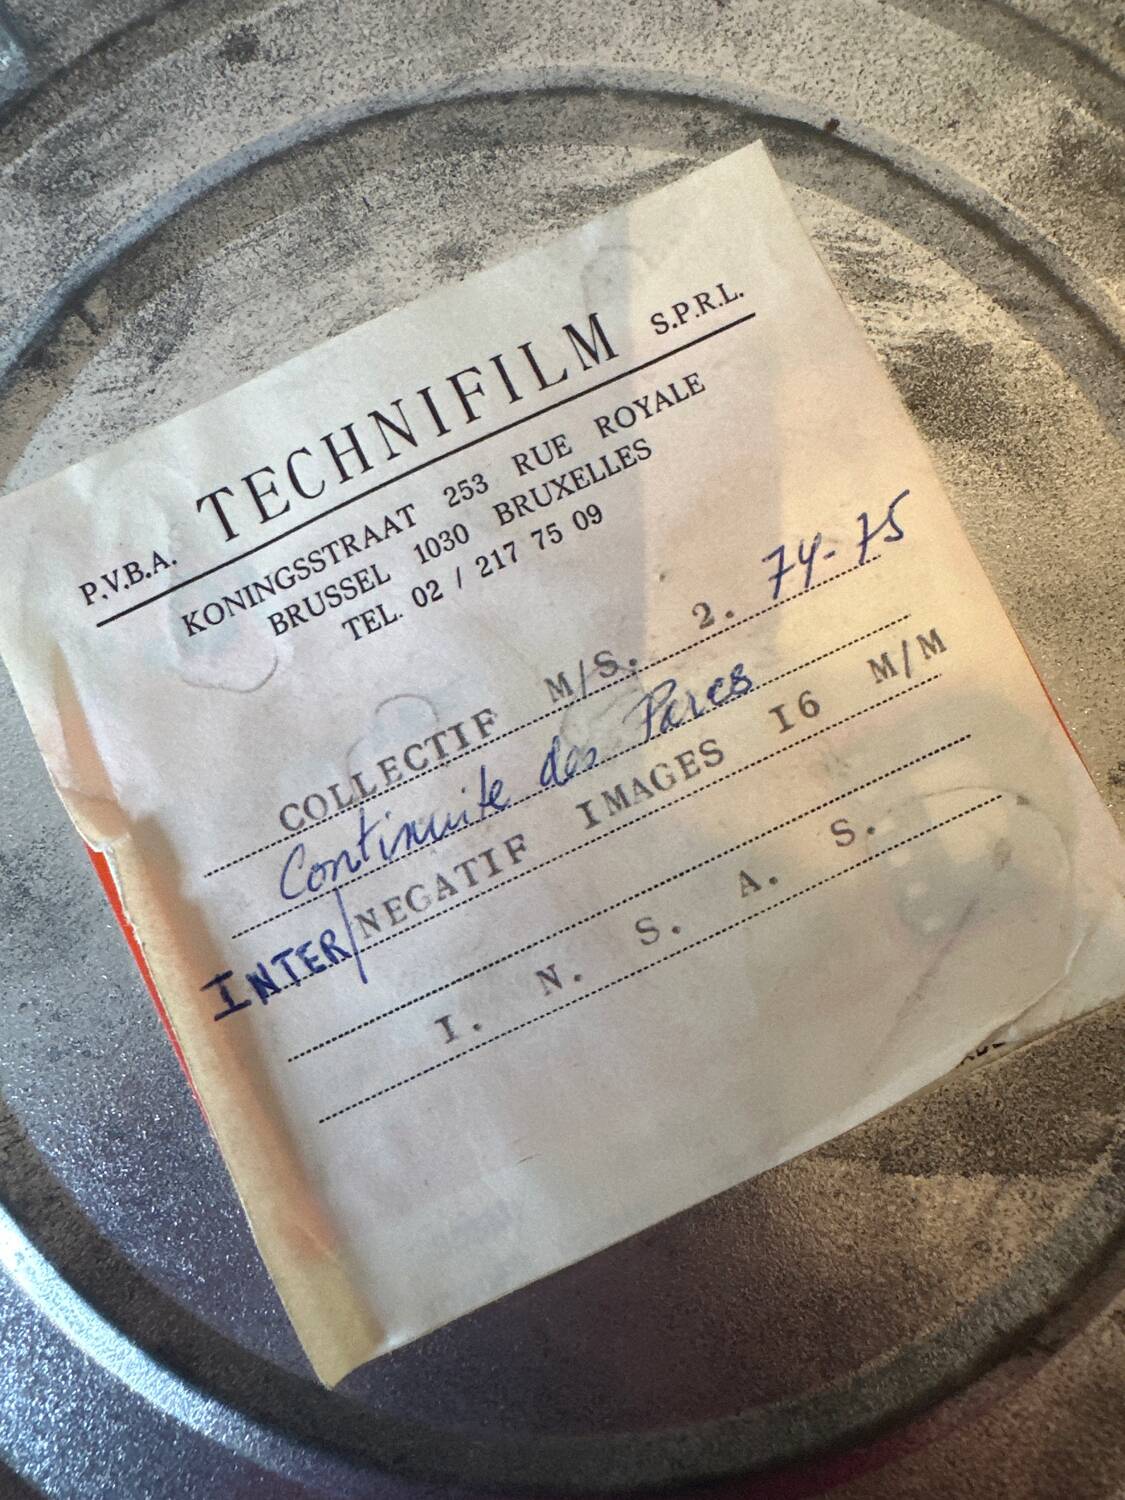 P.V.B.A. TECHNIFILM S.P.R.L.
KONINGSSTRAAT 253 RUE ROYALE
BRUSSEL 1030 BRUXELLES
TEL. 02 / 217 75 09
COLLECTIF M/S. 2. 74-75
Continuite des Parcs
INTER/NEGATIF IMAGES I6 M/M
I. N. S. A. S.